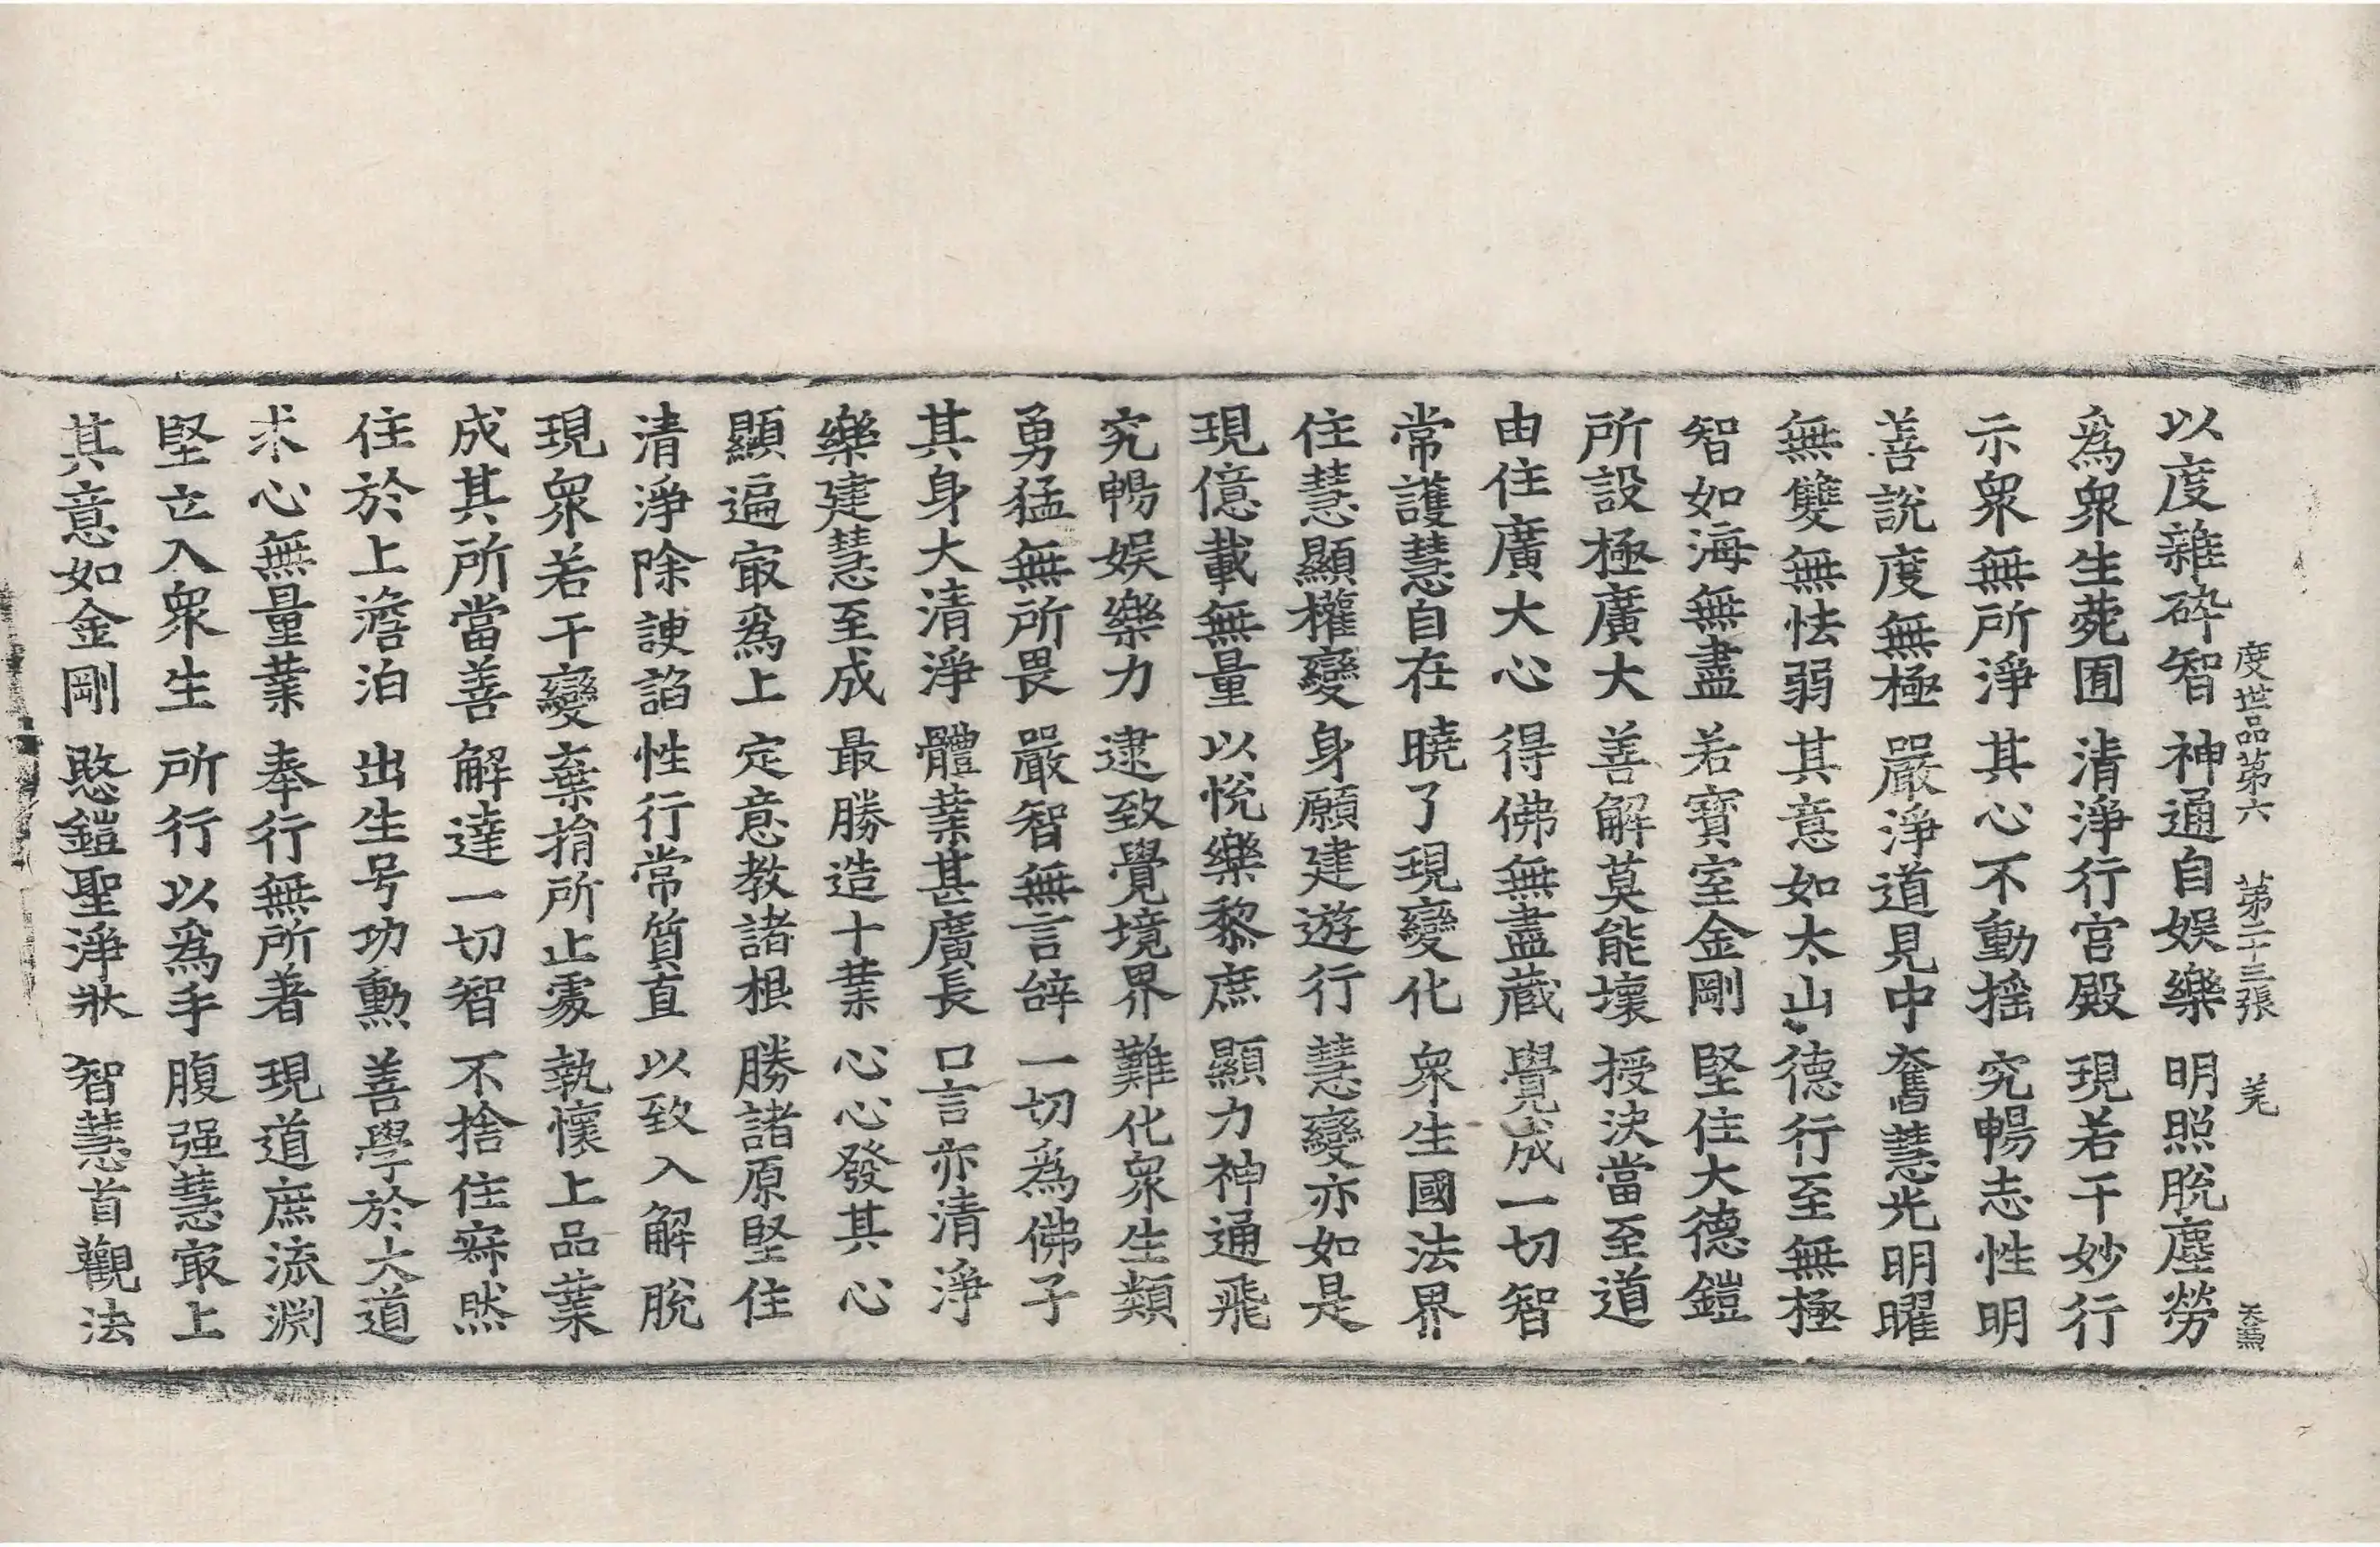 度世品第六 第二十三張 羌 天爲
以度雜碎智 神通自娛樂 明照脫塵勞
爲衆生苑囿 清淨行宮殿 現若干妙行
示衆無所淨 其心不動搖 究暢志性明
善說度無極 嚴淨道見中 奮慧光明曜
無雙無怯弱 其意如太山 德行至無極
智如海無盡 若寶室金剛 堅住大德鎧
所設極廣大 善解莫能壞 授決當至道
由住廣大心 得佛無盡藏 覺成一切智
常護慧自在 曉了現變化 衆生國法界
住慧顯權變 身願建遊行 慧變亦如是
現億載無量 以悅樂黎庶 顯力神通飛
究暢娛樂力 逮致覺境界 難化衆生類
勇猛無所畏 嚴智無言辝 一切爲佛子
其身大清淨 體業甚廣長 口言亦清淨
樂建慧至成 最勝造十業 心心發其心
顯遍㝡爲上 定意教諸根 勝諸原堅住
清淨除諛諂 性行常質直 以致入解脫
現衆若干變 棄捐所止處 執懷上品業
成其所當善 解達一切智 不捨住寂然
住於上澹泊 出生号功勳 善學於大道
求心無量業 奉行無所著 現道庶流淵
堅立入衆生 所行以爲手 腹强慧㝡上
其意如金剛 愍鎧聖淨狀 智慧首觀法